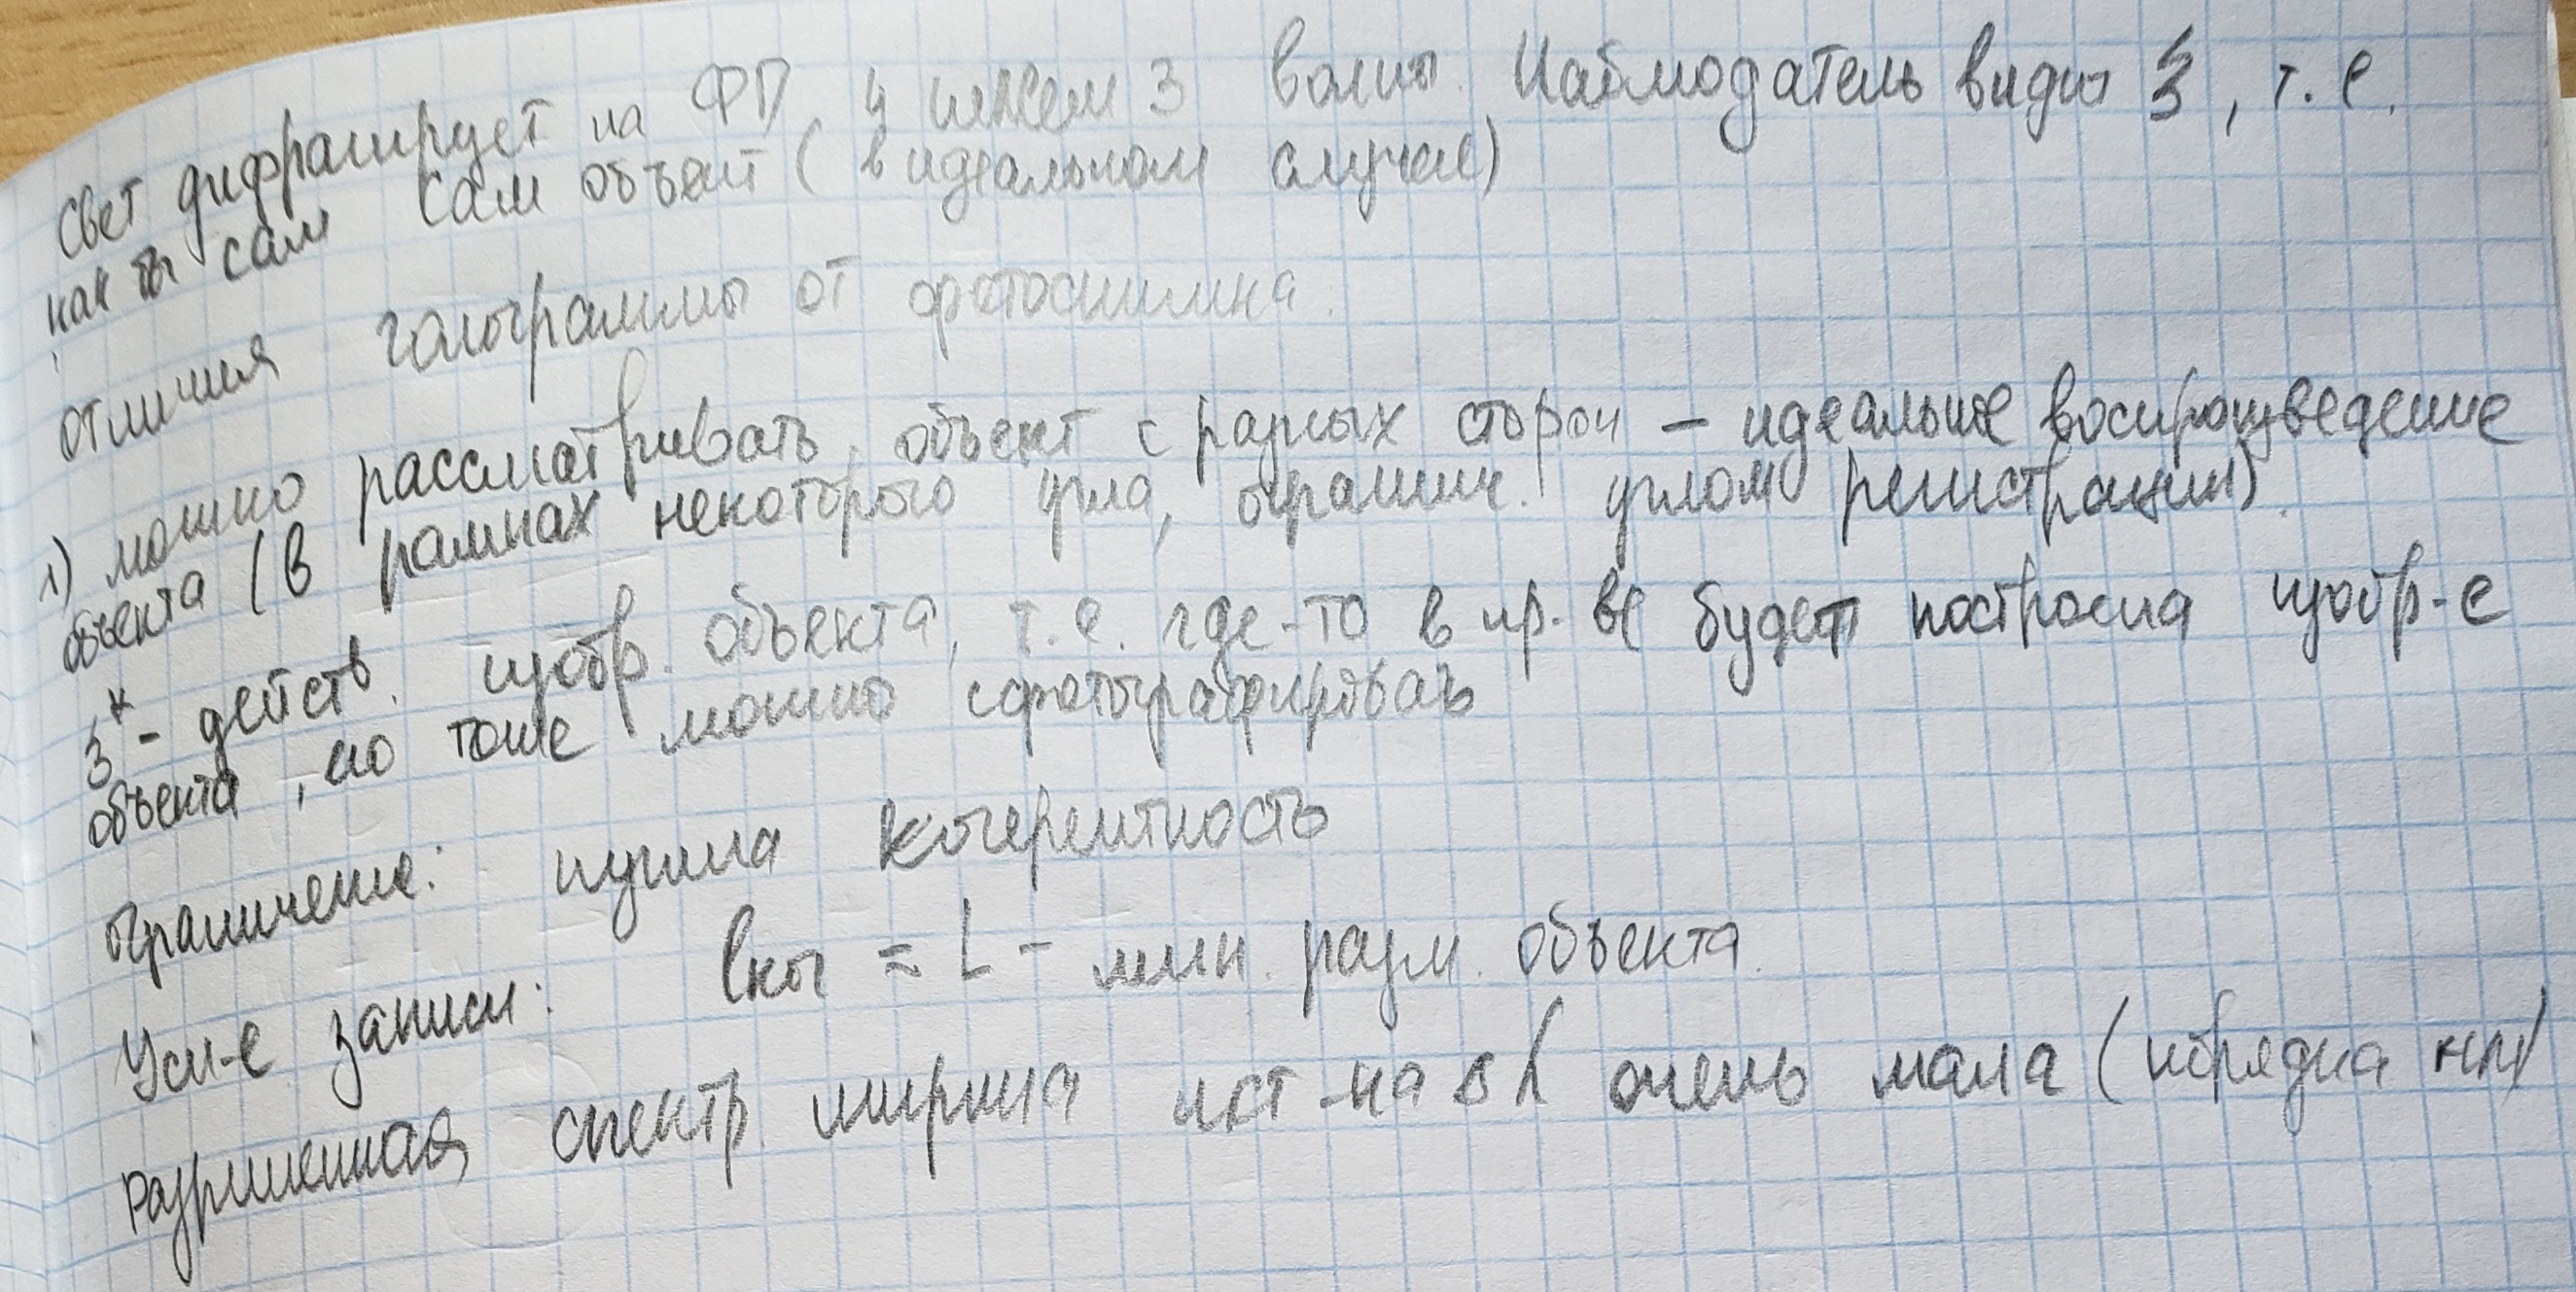 Свет дифрагирует на ФП и имеем 3 волны. Наблюдатель видит 3, т.е.
как бы сам сам объект (в идеальном случае)
отличия голограммы от фотоснимка.
1) можно рассматривать объект с разных сторон – идеальное воспроизведение
объекта (в рамках некоторого угла, огранич. углом регистрации).
3* - действ. изобр. объекта, т.е. где-то в пр-ве будет построена изобр-е
объекта, но тоже можно сфотографировать
Ограничение: нужна когерентность
Усл-е записи: lког = L - мин. разм. объекта.
Разрешенная спектр. ширина ист-на очень мала (порядка нм)